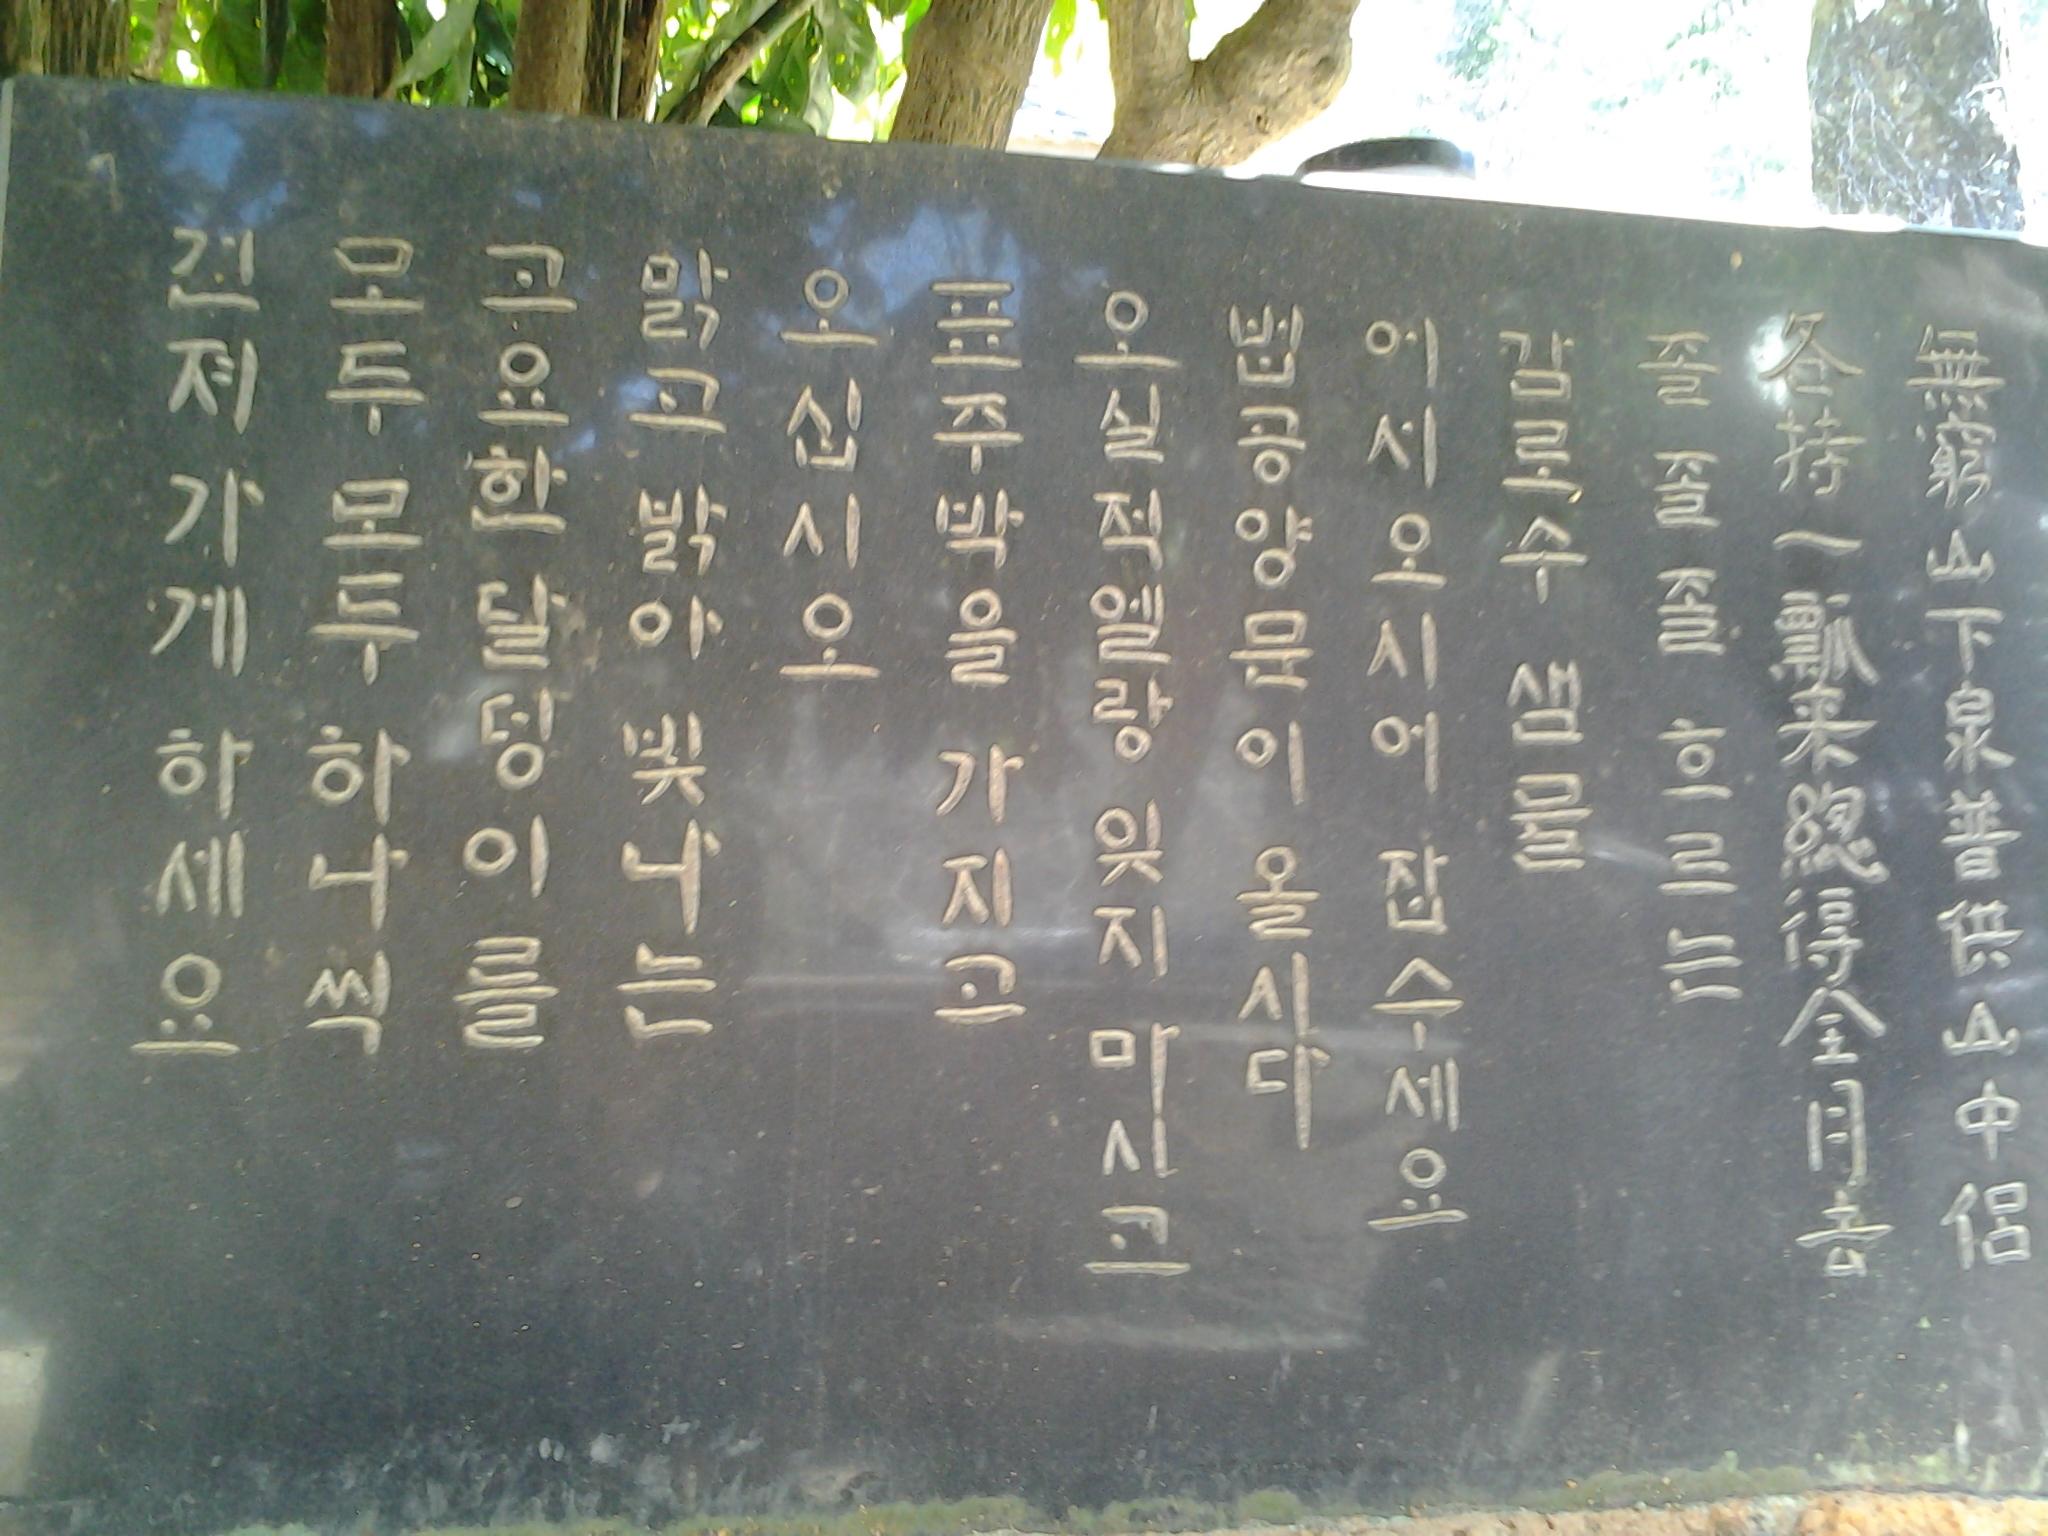 無窮山下泉普供山中侶
各持一瓢来總得全月去
졸졸졸 흐르는
감로수 샘물
어서오시어 잡수세요
법공양문이 올시다
오실적엘랑 잊지 마시고
표주박을 가지고
오십시오
맑고 밝아 빛나는
고요한 달덩이를
모두 모두 하나씩
건져 가게 하세요